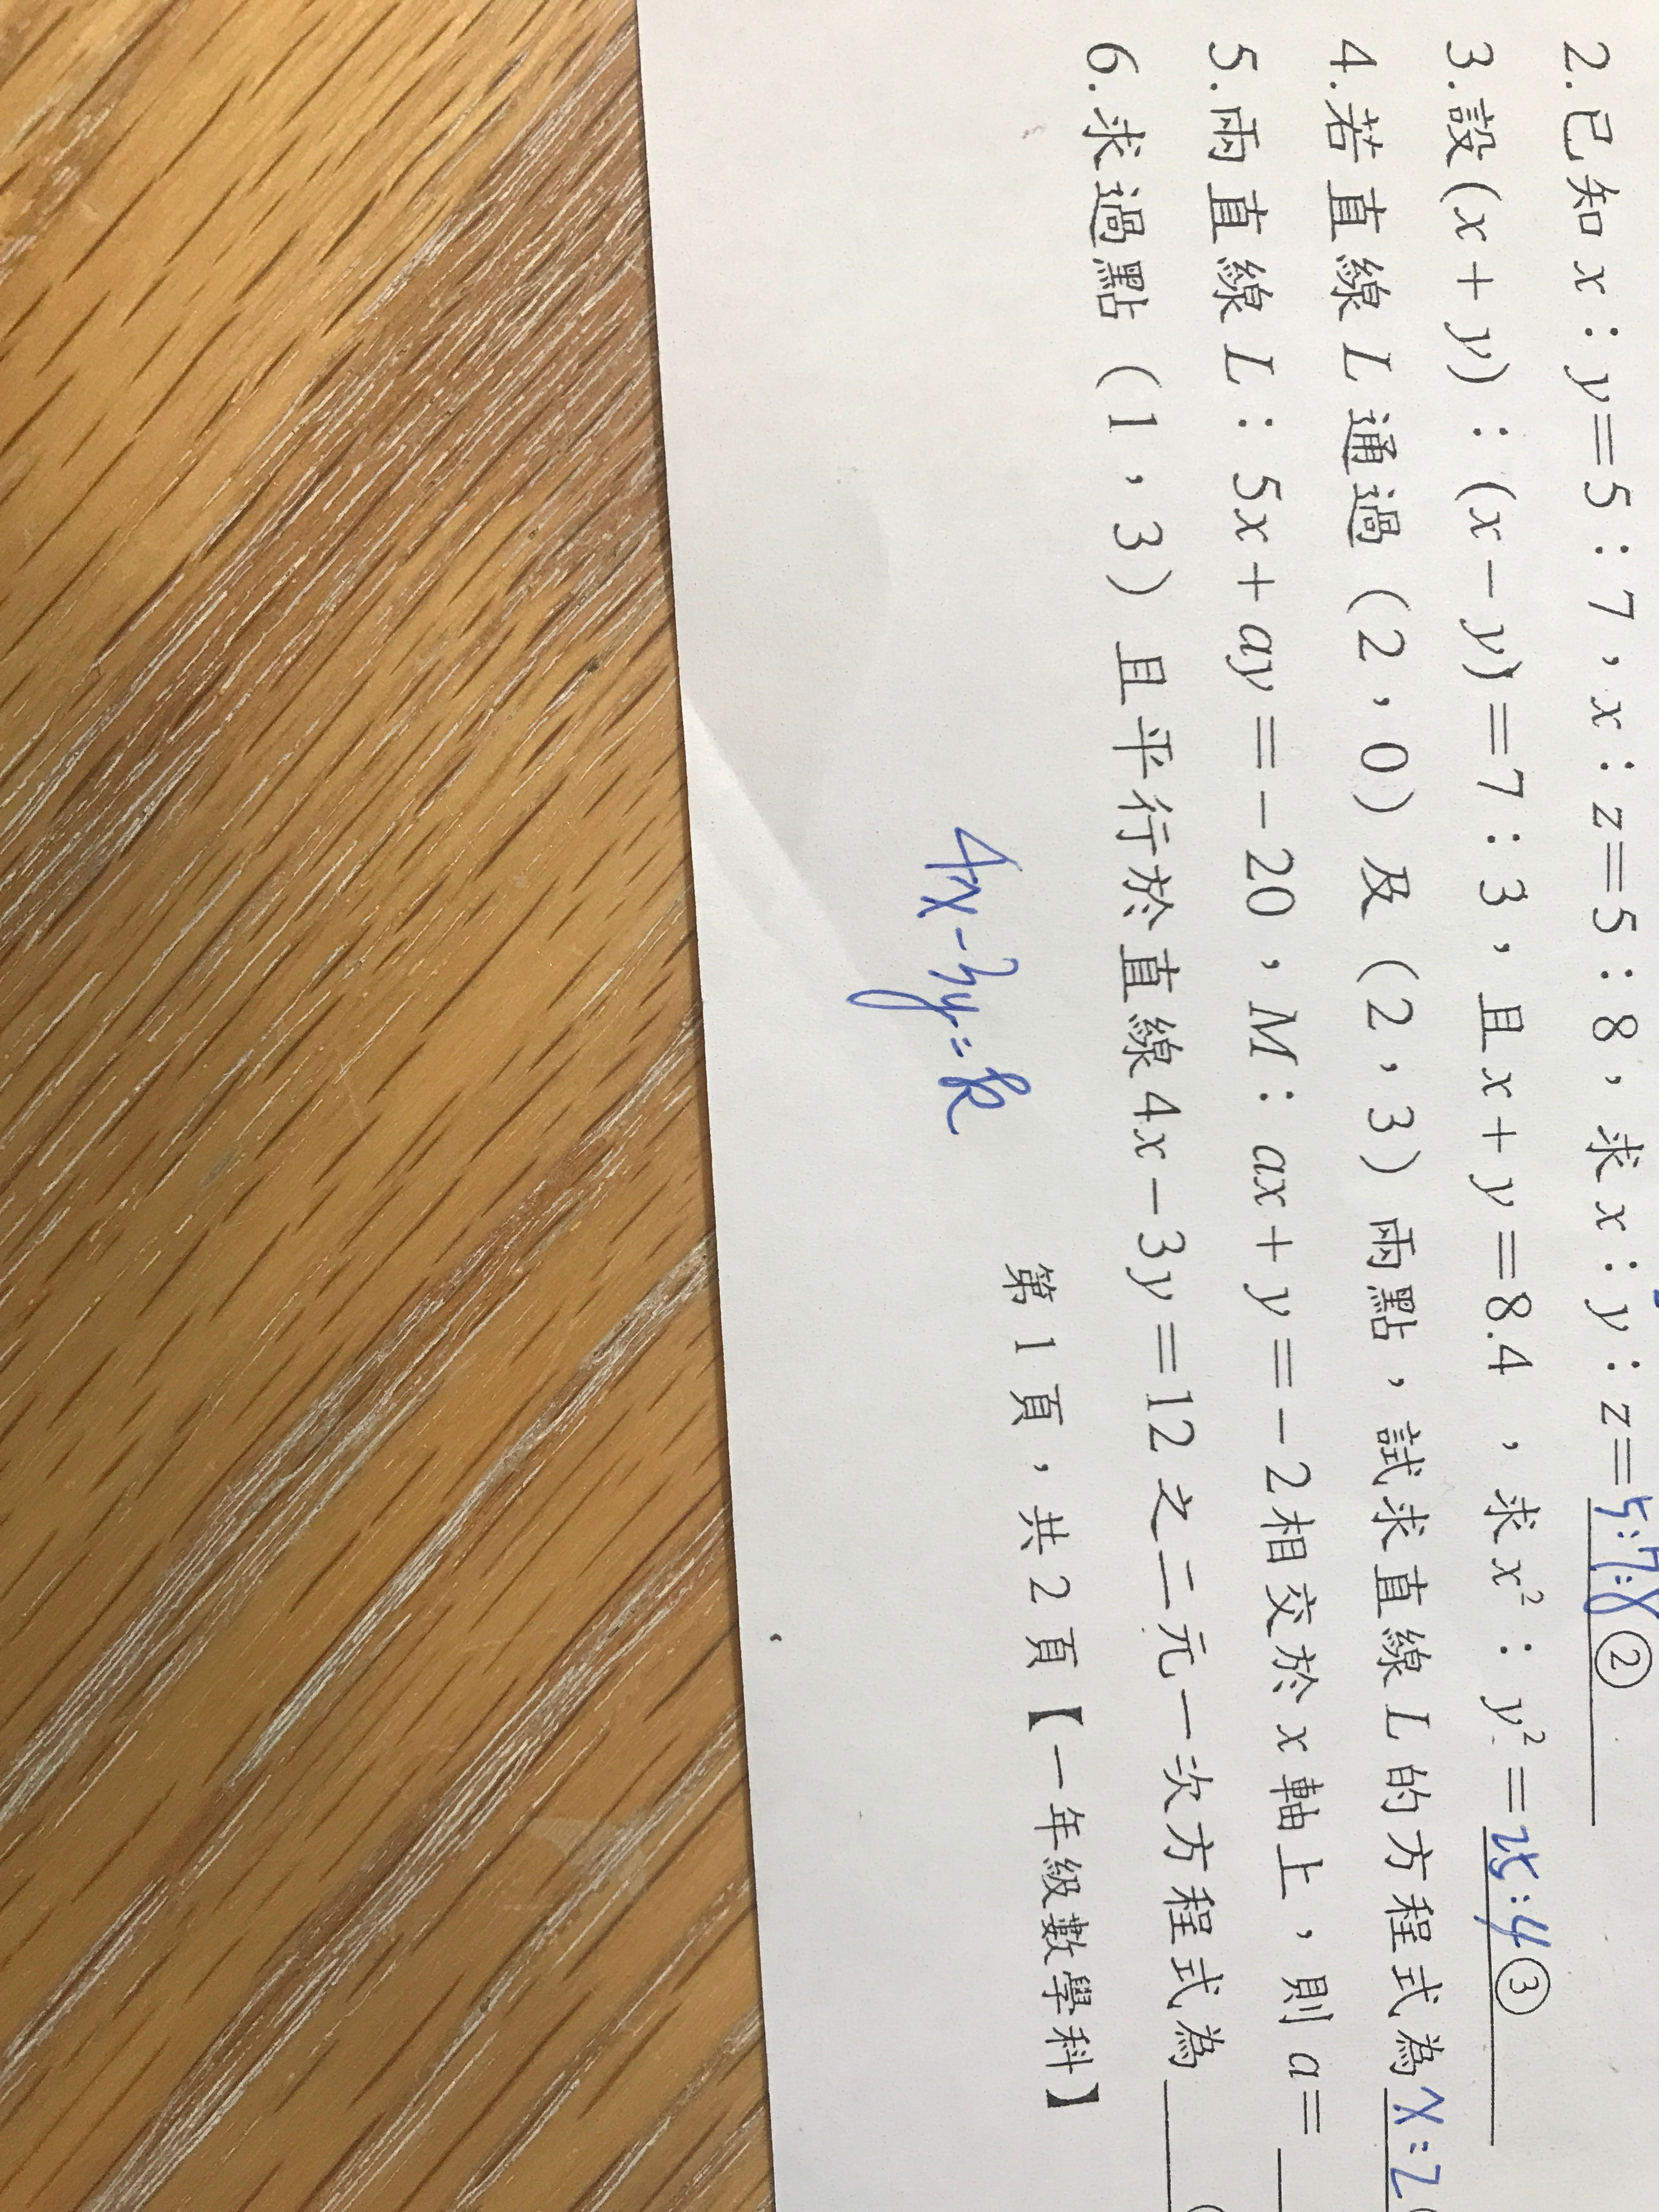 2.已知x：y＝5：7，x：z＝5：8，求x：y：z＝5:7:8②
3.設(x＋y)：(x－y)＝7：3，且x＋y＝8.4，求x²：y²＝25:4③
4.若直線L通過（2，0）及（2，3）兩點，試求直線L的方程式為x=2
5.兩直線L：5x＋ay＝－20，M：ax＋y＝－2相交於x軸上，則a＝
6.求過點（1，3）且平行於直線4x－3y＝12之二元一次方程式為
4x-3y=k
第1頁，共2頁【一年級數學科】